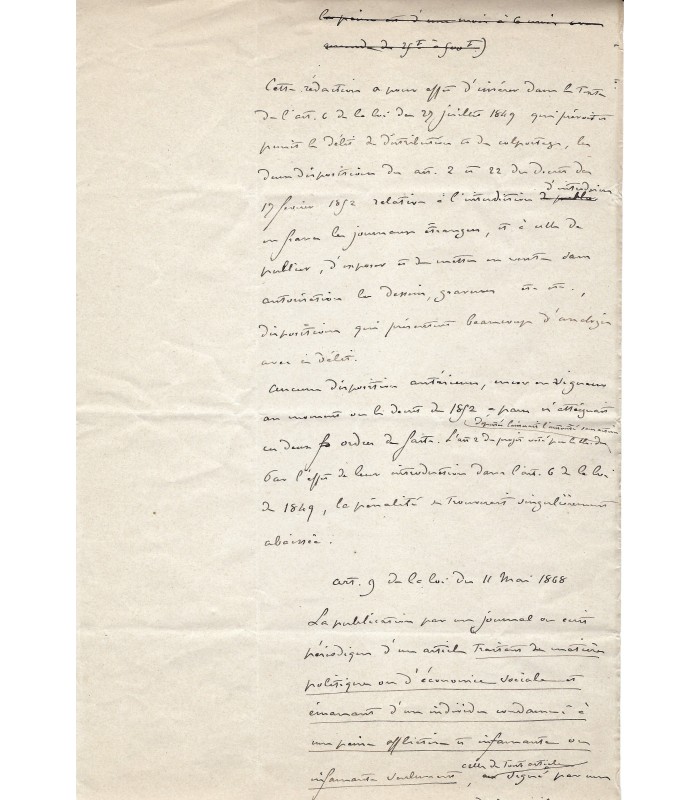 la peine est d'un mois à 6 mois ou
amende de 25f à 500f)
Cette rédaction a pour effet d'insérer dans le texte
de l'art. 6 de la loi du 27 juillet 1849 qui prévoit et
punit le délit de distribution et de colportage, les
deux dispositions des art. 2 et 22 du décret du
17 février 1852 relatives à l'interdiction de publie
d'introduire
en France les journaux étrangers, et à celle de
publier, d'exposer et de mettre en vente sans
autorisation les dessins, gravures etc etc.,
dispositions qui présentent beaucoup d'analogie
avec ce délit.
Aucune disposition antérieure, encore en vigueur
au moment où le décret de 1852 a paru n'atteignait
ces deux ordres de faits. L'art 2 du projet voté par la ch. des
députés
Par l'effet de leur introduction dans l'art. 6 de la loi
de 1849, la pénalité se trouverait singulièrement
abaissée.
art. 9 de la loi du 11 Mai 1868
La publication par un journal ou écrit
périodique d'un article traitant de matières
politiques ou d'économie sociale et
émanant d'un individu condamné à
une peine afflictive et infamante ou
infamante seulement, ou signé par un
celle de tout article